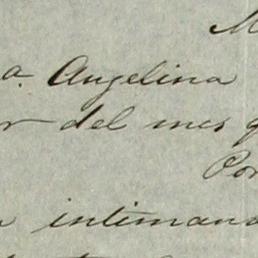 M
a. Angelina
r del mes q
Por
a intimand